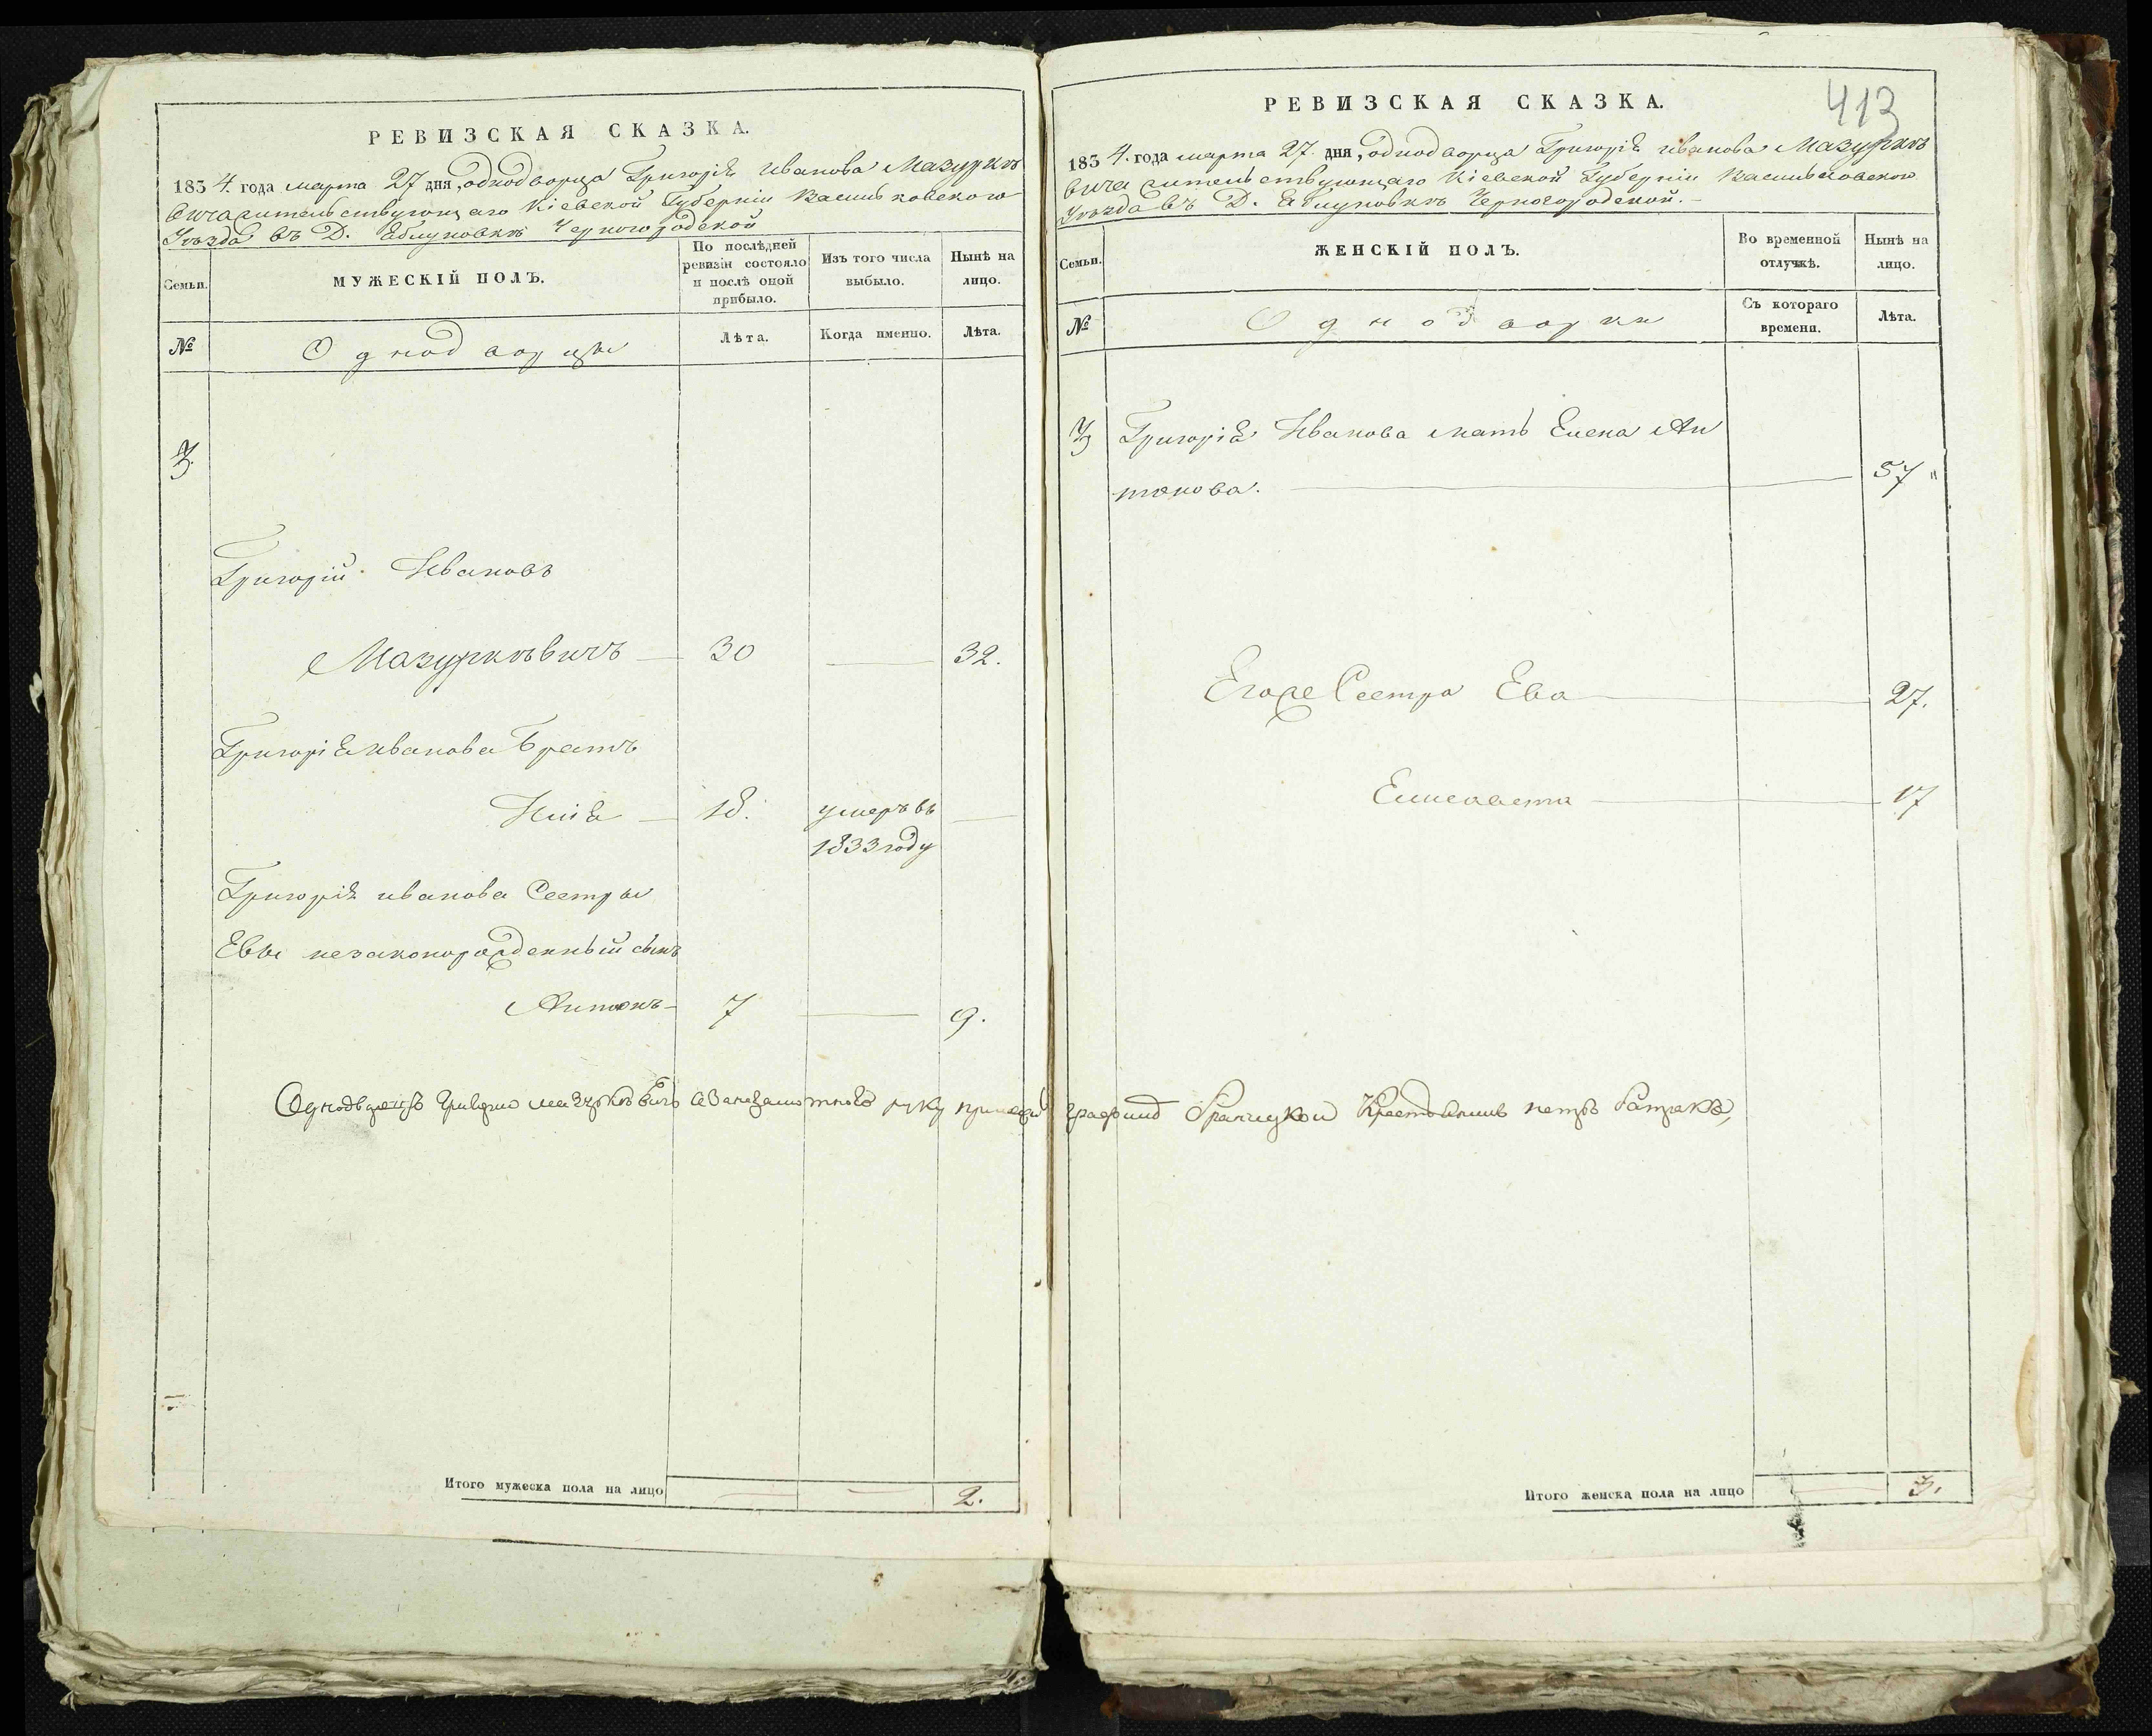 РЕВИЗСКАЯ СКАЗКА.
1834. года марта 27 дня, однодворца Григорія Иванова Мазуркѣ
вича жительствующаго Кіевской Губерніи Васильковского
Уѣзда въ Д. Яблуновкѣ Черногородской
Семьи.
МУЖЕСКІЙ ПОЛЪ.
По послѣдней
ревизіи состояло
и послѣ оной
прибыло.
Изъ того числа
выбыло.
Нынѣ на
лицо.
№
Однодворцы
Лѣта.
Когда именно.
Лѣта.
3.
Григорій Ивановъ
Мазуркѣвичъ — 30 — 32.
Григорія Иванова Братъ
Илія — 18. умеръ въ —
1833 году
Григорія Иванова Сестры
Евы незаконорожденный сынъ
Антонъ — 7 — 9.
Итого мужеска пола на лицо
2.
413
РЕВИЗСКАЯ СКАЗКА.
1834. года марта 27. дня, однодворца Григорія Иванова Мазуркѣ
вича жительствующаго Кіевской Губерніи Васильковского
Уѣзда въ Д. Яблуновкѣ Черногородской. —
Семьи.
ЖЕНСКІЙ ПОЛЪ.
Во временной
отлучкѣ.
Нынѣ на
лицо.
№
Однодворки
Съ котораго
времени.
Лѣта.
3
Григорія Иванова мать Елена Ан
тонова. — 57 "
Егоже Сестра Ева — 27.
Елисавета — 17
Однодворецъ Мазуркѣвичъ руку Крестьянинъ
Итого женска пола на лицо
3.